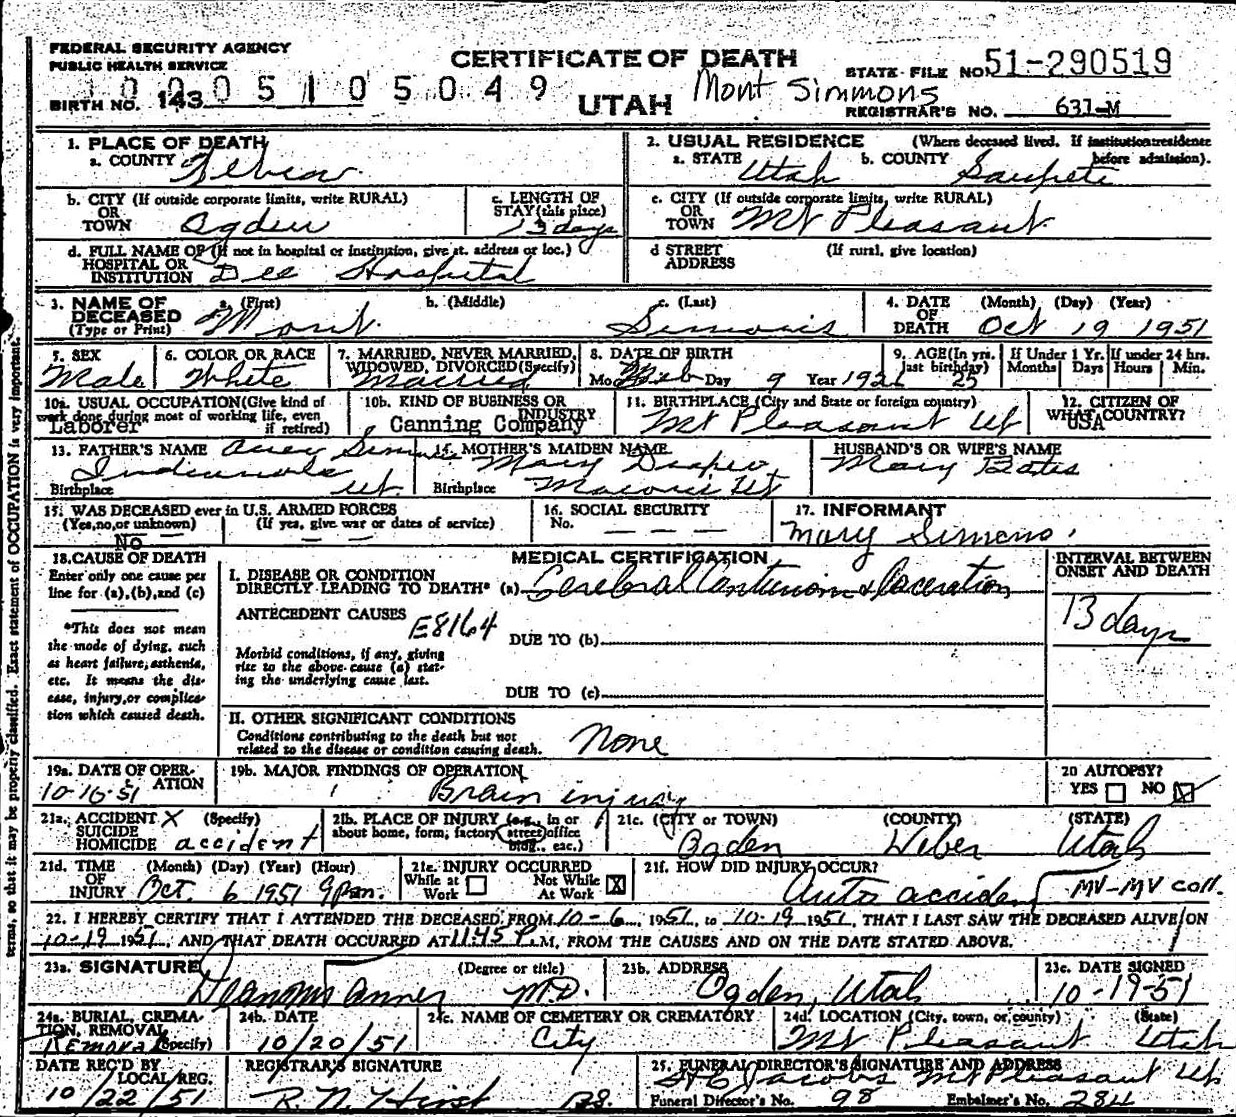 FEDERAL SECURITY AGENCY
PUBLIC HEALTH SERVICE
CERTIFICATE OF DEATH
STATE FILE NO. 51-290519
1 0 0 0 5 1 0 5 0 4 9
BIRTH NO. 143
UTAH
Mont Simmons
REGISTRAR'S NO. 631-M
1. PLACE OF DEATH
a. COUNTY Weber
2. USUAL RESIDENCE (Where deceased lived. If institution: residence before admission).
a. STATE Utah b. COUNTY Sanpete
b. CITY (If outside corporate limits, write RURAL) OR TOWN Ogden
c. LENGTH OF STAY (this place) 13 days
c. CITY (If outside corporate limits, write RURAL) OR TOWN Mt Pleasant
d. FULL NAME OF (If not in hospital or institution, give st. address or loc.) HOSPITAL OR INSTITUTION Dee Hospital
d STREET ADDRESS (If rural, give location)
3. NAME OF DECEASED (Type or Print)
a. (First) Mont b. (Middle) c. (Last) Simons
4. DATE OF DEATH (Month) (Day) (Year) Oct 19 1951
5. SEX Male
6. COLOR OR RACE White
7. MARRIED, NEVER MARRIED, WIDOWED, DIVORCED (Specify) Married
8. DATE OF BIRTH Mo Feb Day 9 Year 1926
9. AGE (In yrs. last birthday) 25
If Under 1 Yr. Months Days
If under 24 hrs. Hours Min.
10a. USUAL OCCUPATION (Give kind of work done during most of working life, even if retired) Laborer
10b. KIND OF BUSINESS OR INDUSTRY Canning Company
11. BIRTHPLACE (City and State or foreign country) Mt Pleasant Ut
12. CITIZEN OF WHAT COUNTRY? USA
13. FATHER'S NAME
Birthplace Indianola Ut.
14. MOTHER'S MAIDEN NAME Mary Draper
Birthplace Moroni Ut
HUSBAND'S OR WIFE'S NAME Mary Bates
15. WAS DECEASED ever in U.S. ARMED FORCES
(Yes, no, or unknown) No
(If yes, give war or dates of service) — —
16. SOCIAL SECURITY No. — — —
17. INFORMANT Mary Simons
18. CAUSE OF DEATH
Enter only one cause per line for (a), (b), and (c)
*This does not mean the mode of dying, such as heart failure, asthenia, etc. It means the disease, injury, or complication which caused death.
MEDICAL CERTIFICATION
I. DISEASE OR CONDITION DIRECTLY LEADING TO DEATH* (a) Cerebral Contusion & laceration
ANTECEDENT CAUSES E8164
DUE TO (b)
Morbid conditions, if any, giving rise to the above cause (a) stating the underlying cause last.
DUE TO (c)
INTERVAL BETWEEN ONSET AND DEATH
13 days
II. OTHER SIGNIFICANT CONDITIONS
Conditions contributing to the death but not related to the disease or condition causing death. None
19a. DATE OF OPERATION 10-16-51
19b. MAJOR FINDINGS OF OPERATION Brain injury
20 AUTOPSY? YES NO X
21a. ACCIDENT X SUICIDE HOMICIDE (Specify) accident
21b. PLACE OF INJURY (e.g., in or about home, form, factory street office bldg., eac.)
21c. (CITY or TOWN) (COUNTY) (STATE)
Ogden Weber Utah
21d. TIME OF INJURY (Month) (Day) (Year) (Hour) Oct. 6 1951 9 pm.
21e. INJURY OCCURRED While at Work Not While At Work X
21f. HOW DID INJURY OCCUR? Auto accident MV-MV coll.
22. I HEREBY CERTIFY THAT I ATTENDED THE DECEASED FROM 10-6, 1951, to 10-19 1951, THAT I LAST SAW THE DECEASED ALIVE ON
10-19 1951, AND THAT DEATH OCCURRED AT 11:45 P.M, FROM THE CAUSES AND ON THE DATE STATED ABOVE.
23a. SIGNATURE (Degree or title) M.D.
23b. ADDRESS Ogden, Utah
23c. DATE SIGNED 10-19-51
24a. BURIAL, CREMATION, REMOVAL (Specify) Removal
24b. DATE 10/20/51
24c. NAME OF CEMETERY OR CREMATORY City
24d. LOCATION (City, town, or county) (State) Mt Pleasant Utah
DATE REC'D BY LOCAL REG. 10/22/51
REGISTRAR'S SIGNATURE R. N. Hirst
25. FUNERAL DIRECTOR'S SIGNATURE AND ADDRESS Jacobs Mt Pleasant Ut
Funeral Director's No. 98 Embalmer's No. 284
terms, so that it may be properly classified. Exact statement of OCCUPATION is very important.